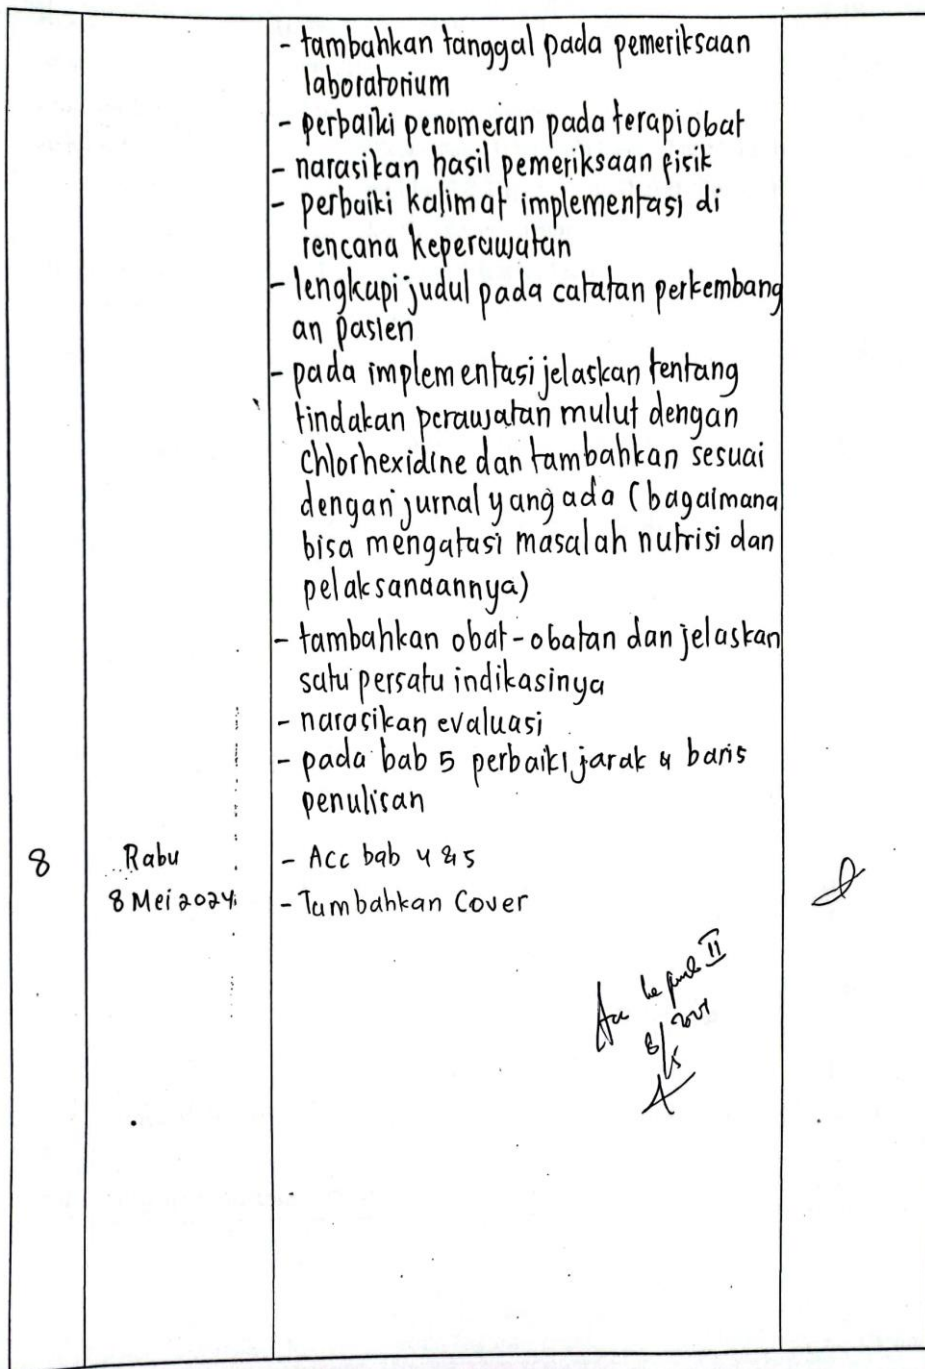 - tambahkan tanggal pada pemeriksaan
laboratorium
- perbaiki penomeran pada terapi obat
- narasikan hasil pemeriksaan fisik
- perbaiki kalimat implementasi di
rencana keperawatan
- lengkapi judul pada catatan perkembang
an pasien
- pada implementasi jelaskan tentang
tindakan perawatan mulut dengan
chlorhexidine dan tambahkan sesuai
dengan jurnal yang ada (bagaimana
bisa mengatasi masalah nutrisi dan
pelaksanaannya)
- tambahkan obat-obatan dan jelaskan
satu persatu indikasinya
- narasikan evaluasi
- pada bab 5 perbaiki jarak & baris
penulisan
8 Rabu - Acc bab 4 & 5
8 Mei 2024 - Tambahkan Cover
Acc ke II
8/5